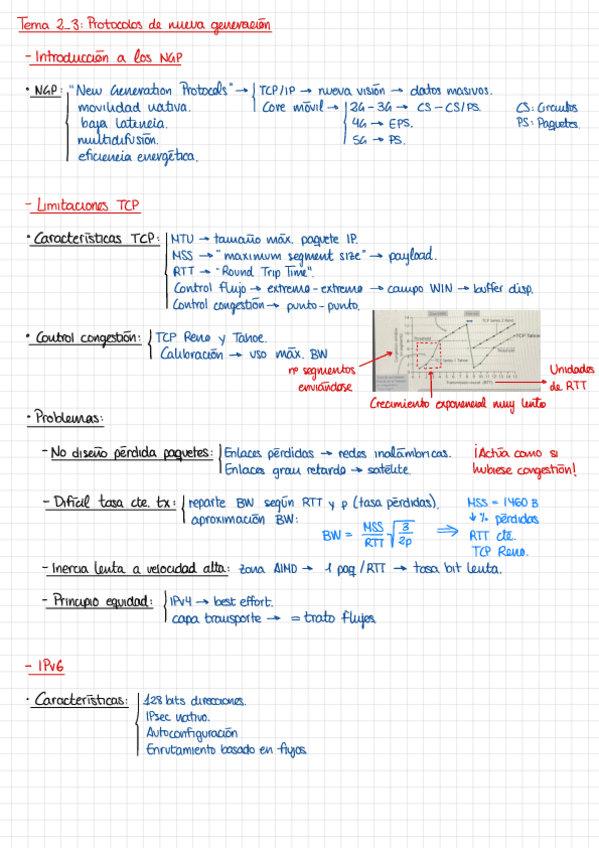 Tema 2_3: Protocolos de nueva generación
- Introducción a los NGP
· NGP: "New Generation Protocols" → TCP/IP → nueva visión → datos masivos.
movilidad nativa. Core móvil → 2G-3G → CS-CS/PS. CS: Circuitos
baja latencia. 4G → EPS. PS: Paquetes.
multidifusión. 5G → PS.
eficiencia energética.
- Limitaciones TCP
· Características TCP: MTU → tamaño máx. paquete IP.
MSS → "maximum segment size" → payload.
RTT → "Round Trip Time".
Control flujo → extremo-extremo → campo WIN → buffer disp.
Control congestión → punto-punto.
· Control congestión: TCP Reno y Tahoe.
Calibración → uso máx. BW
nº segmentos enviándose
Threshold
TCP Series 2 Reno
TCP Tahoe
Threshold
TCP Series 1 Tahoe
Transmission round (RTT)
Unidades de RTT
Crecimiento exponencial muy lento
· Problemas:
- No diseño pérdida paquetes: Enlaces pérdidos → redes inalámbricas. ¡Actúa como si
Enlaces gran retardo → satélite. hubiese congestión!
- Difícil tasa cte. tx: reparte BW según RTT y p (tasa pérdidas). MSS = 1460 B
aproximación BW: ↓% pérdidas
BW = MSS/RTT √3/2p ⇒ RTT cte.
TCP Reno.
- Inercia lenta a velocidad alta: zona AIMD → 1 paq/RTT → tasa bit lenta.
- Principio equidad: IPv4 → best effort.
capa transporte → = trato flujos
- IPv6
· Características: 128 bits direcciones.
IPsec nativo.
Autoconfiguración
Enrutamiento basado en flujos